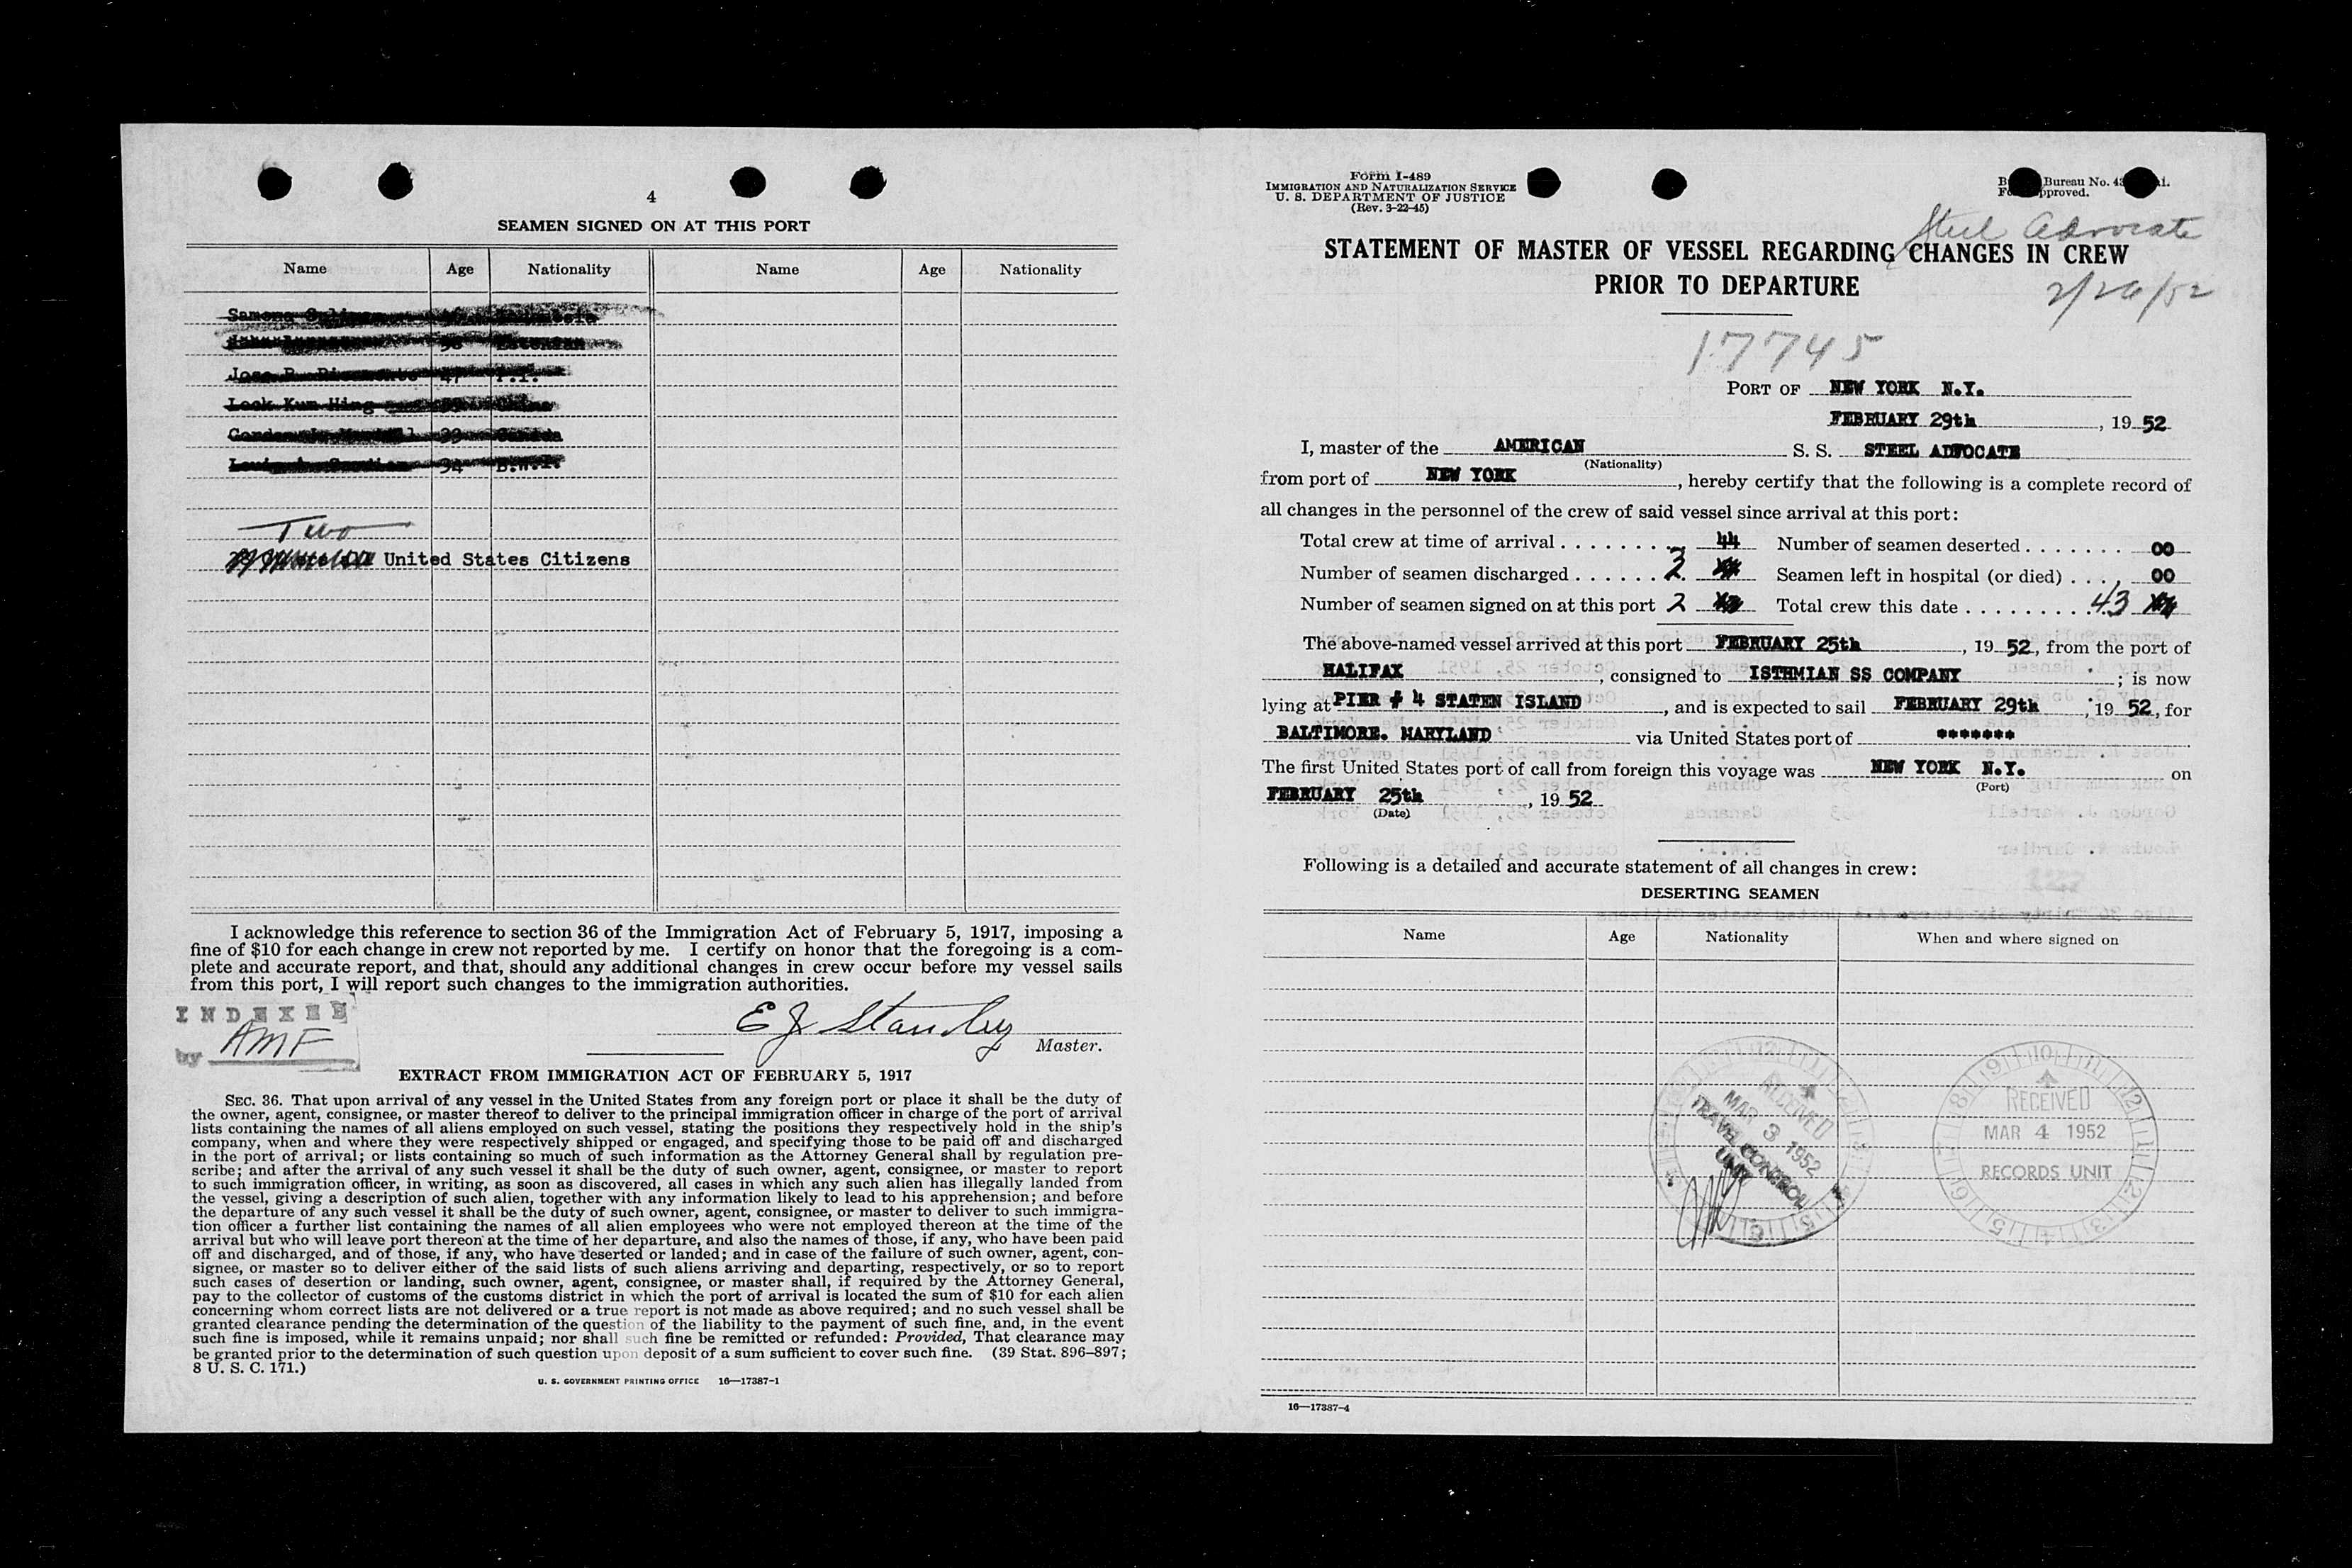 4
SEAMEN SIGNED ON AT THIS PORT
Name Age Nationality Name Age Nationality
Samona
Jose R. 47 P.I.
Look Kum Hing China
Gordon J. 33 Canada
Louis A. 34 B.W.I.
Two
United States Citizens
I acknowledge this reference to section 36 of the Immigration Act of February 5, 1917, imposing a
fine of $10 for each change in crew not reported by me. I certify on honor that the foregoing is a com-
plete and accurate report, and that, should any additional changes in crew occur before my vessel sails
from this port, I will report such changes to the immigration authorities.
INDEXED
by AMF
E J Stanley
Master.
EXTRACT FROM IMMIGRATION ACT OF FEBRUARY 5, 1917
SEC. 36. That upon arrival of any vessel in the United States from any foreign port or place it shall be the duty of
the owner, agent, consignee, or master thereof to deliver to the principal immigration officer in charge of the port of arrival
lists containing the names of all aliens employed on such vessel, stating the positions they respectively hold in the ship's
company, when and where they were respectively shipped or engaged, and specifying those to be paid off and discharged
in the port of arrival; or lists containing so much of such information as the Attorney General shall by regulation pre-
scribe; and after the arrival of any such vessel it shall be the duty of such owner, agent, consignee, or master to report
to such immigration officer, in writing, as soon as discovered, all cases in which any such alien has illegally landed from
the vessel, giving a description of such alien, together with any information likely to lead to his apprehension; and before
the departure of any such vessel it shall be the duty of such owner, agent, consignee, or master to deliver to such immigra-
tion officer a further list containing the names of all alien employees who were not employed thereon at the time of the
arrival but who will leave port thereon at the time of her departure, and also the names of those, if any, who have been paid
off and discharged, and of those, if any, who have deserted or landed; and in case of the failure of such owner, agent, con-
signee, or master so to deliver either of the said lists of such aliens arriving and departing, respectively, or so to report
such cases of desertion or landing, such owner, agent, consignee, or master shall, if required by the Attorney General,
pay to the collector of customs of the customs district in which the port of arrival is located the sum of $10 for each alien
concerning whom correct lists are not delivered or a true report is not made as above required; and no such vessel shall be
granted clearance pending the determination of the question of the liability to the payment of such fine, and, in the event
such fine is imposed, while it remains unpaid; nor shall such fine be remitted or refunded: Provided, That clearance may
be granted prior to the determination of such question upon deposit of a sum sufficient to cover such fine. (39 Stat. 896–897;
8 U. S. C. 171.)
U. S. GOVERNMENT PRINTING OFFICE 16—17387-1
Form I-489
IMMIGRATION AND NATURALIZATION SERVICE
U. S. DEPARTMENT OF JUSTICE
(Rev. 3-22-45)
Bureau No. 43
pproved.
Steel Advocate
STATEMENT OF MASTER OF VESSEL REGARDING CHANGES IN CREW
PRIOR TO DEPARTURE
2/26/52
17745
PORT OF NEW YORK N.Y.
FEBRUARY 29th, 19 52
I, master of the AMERICAN S. S. STEEL ADVOCATE
(Nationality)
from port of NEW YORK, hereby certify that the following is a complete record of
all changes in the personnel of the crew of said vessel since arrival at this port:
Total crew at time of arrival 44 Number of seamen deserted 00
Number of seamen discharged 3 Seamen left in hospital (or died) 00
Number of seamen signed on at this port 2 Total crew this date 43
The above-named vessel arrived at this port FEBRUARY 25th, 19 52, from the port of
HALIFAX, consigned to ISTHMIAN SS COMPANY; is now
lying at PIER # 4 STATEN ISLAND, and is expected to sail FEBRUARY 29th, 19 52, for
BALTIMORE. MARYLAND via United States port of *******
The first United States port of call from foreign this voyage was NEW YORK N.Y. on
(Port)
FEBRUARY 25th, 19 52
(Date)
Following is a detailed and accurate statement of all changes in crew:
DESERTING SEAMEN
Name Age Nationality When and where signed on
RECEIVED
MAR 3 1952
TRAVEL CONTROL
UNIT
RECEIVED
MAR 4 1952
RECORDS UNIT
16—17387-4